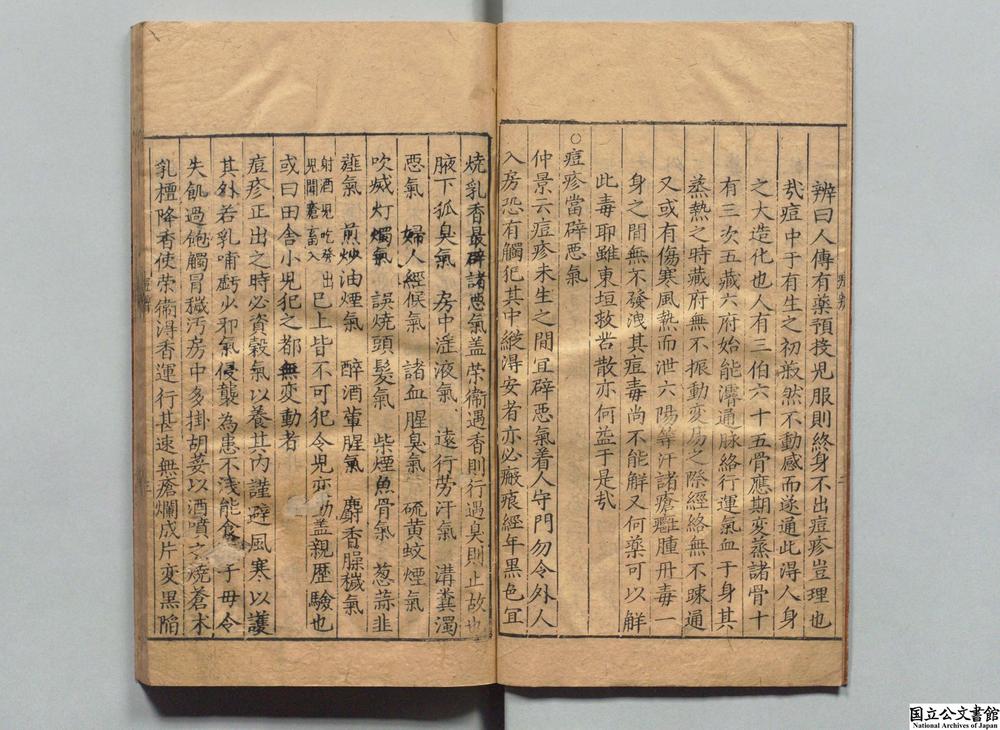 辨曰人傳有藥預投児服則終身不出痘疹豈理也
㢤痘中于有生之初㪔然不動感而遂通此得人身
之大造化也人有三伯六十五骨應期变蒸諸骨十
有三次五藏六府始能濬通脉絡行運氣血于身其
蒸熱之時藏府無不振動变易之際經絡無不疎通
又或有傷寒風熱而泄六陽等汗諸瘡癰腫丹毒一
身之間無不發洩其痘毒尚不能解又何藥可以解
此毒耶雖東垣救苦散亦何益于是㢤
○痘疹當辟悪氣
仲景云痘疹未生之間宜辟悪氣着人守門勿令外人
入房恐有觸犯其中縱得安者亦必瘢痕經年黒色宜
燒乳香最辟諸悪氣盖荣衞遇香則行遇臭則止故也
腋下狐臭氣 房中淫液氣 遠行劳汗氣 溝糞濁
悪氣 婦人經候氣 諸血腥臭氣 硫黄蚊煙氣
吹滅灯燭氣 誤燒頭髮氣 柴煙魚骨氣 葱蒜韭
薤氣 煎炒油煙氣 醉酒葷腥氣 麝香臊穢氣
射酒児吃發出
児聞竈畜入 已上皆不可犯令児变動盖親歴驗也
或曰田舎小児犯之都無变動者
痘疹正出之時必資穀氣以養其内謹避風寒以護
其外若乳哺虧少邪氣侵襲為患不浅能食 子毋令
失飢過飽觸冒穢汚房中多掛胡荽以酒噴之燒蒼术
乳檀降香使荣衞得香運行甚速無瘡爛成片变黒陷
国立公文書館
National Archives of Japan